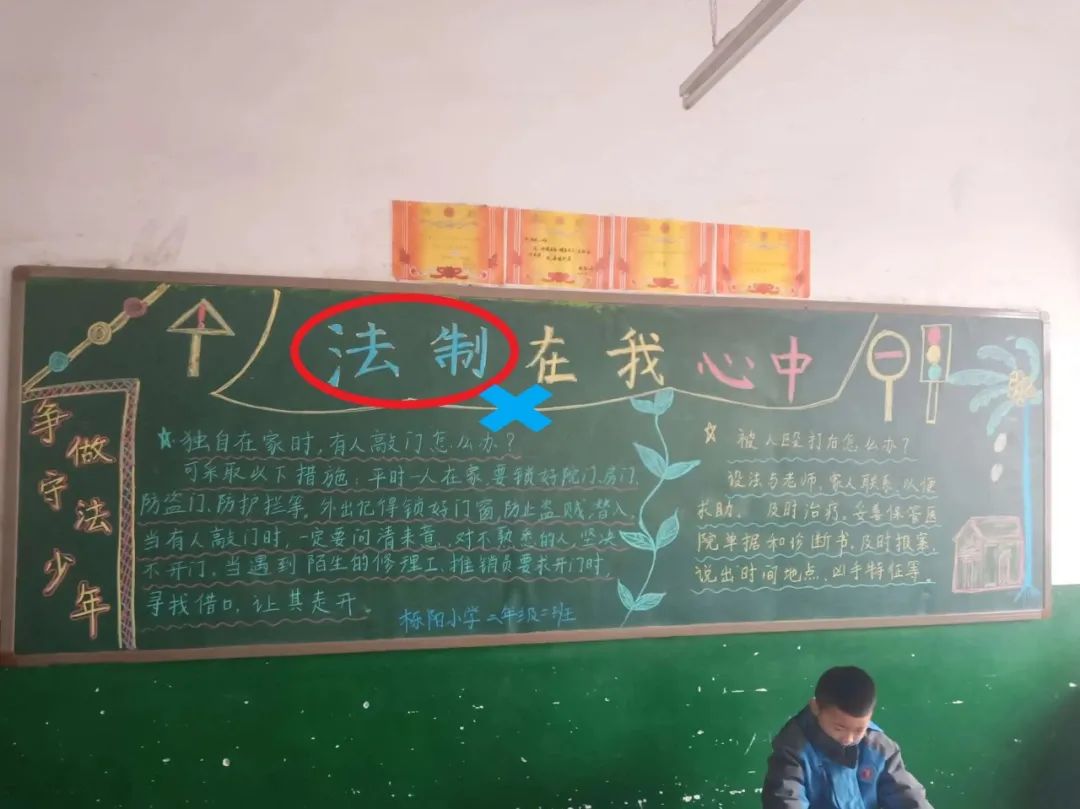 法制在我心中
争做守法少年
独自在家时,有人敲门怎么办?
可采取以下措施:平时一人在家,要锁好院门、房门、
防盗门、防护拦等。外出记得锁好门窗,防止盗贼潜入。
当有人敲门时,一定要问清来意,对不熟悉的人,坚决
不开门。当遇到陌生的修理工、推销员要求开门时,
寻找借口,让其走开。
栎阳小学二年级二班
被人殴打后怎么办?
设法与老师、家人联系,以便
求助。及时治疗,妥善保管医
院单据和诊断书。及时报案,
说出时间地点,凶手特征等。